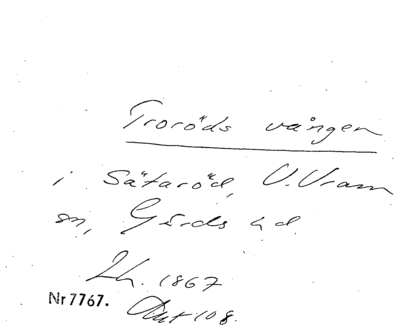 Troröds vången
i Sätaröd, V. Vram
sn, Gärds hd.
Lh. 1867
Nr 7767. Akt 108.